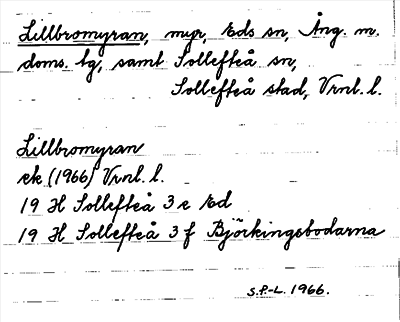 Lillbromyran, myr, Eds sn, Ång. m.
doms. tg, samt Sollefteå sn,
Sollefteå stad, Vrnl. l.
Lillbromyran
ek (1966) Vrnl. l.
19 H Sollefteå 3 e Ed
19 H Sollefteå 3 f Björkingebodarna
S.P.-L. 1966.